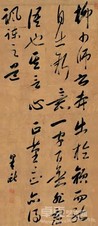 柳少師書本出於顏而能
自出新意一字百金非虛
語也其言心正筆正
諷諫之